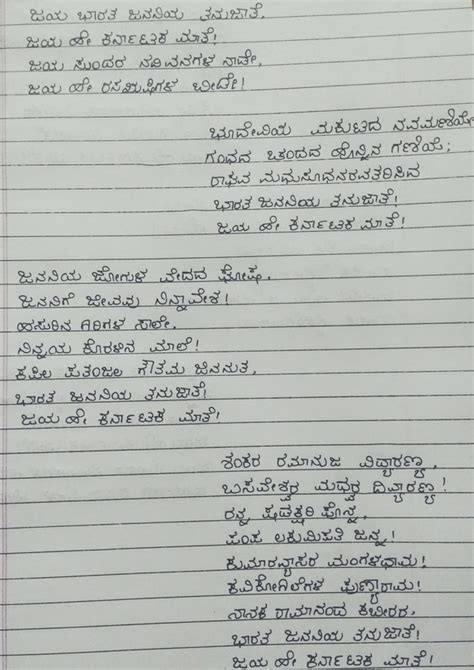 ಜಯ ಭಾರತ ಜನನಿಯ ತನುಜಾತೆ,
ಜಯ ಹೇ ಕರ್ನಾಟಕ ಮಾತೆ!
ಜಯ ಸುಂದರ ನದಿವನಗಳ ನಾಡೇ,
ಜಯ ಹೇ ರಸಋಷಿಗಳ ಬೀಡೇ!
ಭೂದೇವಿಯ ಮಕುಟದ ನವಮಣಿಯೇ
ಗಂಧದ ಚಂದದ ಹೊನ್ನಿನ ಗಣಿಯೆ;
ರಾಘವ ಮಧುಸೂಧನರವತರಿಸಿದ
ಭಾರತ ಜನನಿಯ ತನುಜಾತೆ!
ಜಯ ಹೇ ಕರ್ನಾಟಕ ಮಾತೆ!
ಜನನಿಯ ಜೋಗುಳ ವೇದದ ಘೋಷ,
ಜನನಿಗೆ ಜೀವವು ನಿನ್ನಾವೇಶ!
ಹಸುರಿನ ಗಿರಿಗಳ ಸಾಲೇ,
ನಿನ್ನಯ ಕೊರಳಿನ ಮಾಲೆ!
ಕಪಿಲ ಪತಂಜಲ ಗೌತಮ ಜಿನನುತ,
ಭಾರತ ಜನನಿಯ ತನುಜಾತೆ!
ಜಯ ಹೇ ಕರ್ನಾಟಕ ಮಾತೆ!
ಶಂಕರ ರಮಾನುಜ ವಿದ್ಯಾರಣ್ಯ,
ಬಸವೇಶ್ವರ ಮಧ್ವರ ದಿವ್ಯಾರಣ್ಯ!
ರನ್ನ ಷಡಕ್ಷರಿ ಪೊನ್ನ,
ಪಂಪ ಲಕುಮಿಪತಿ ಜನ್ನ!
ಕುಮಾರವ್ಯಾಸರ ಮಂಗಳಧಾಮ!
ಕವಿಕೋಗಿಲೆಗಳ ಪುಣ್ಯಾರಾಮ!
ನಾನಕ ರಾಮಾನಂದ ಕಬೀರರ,
ಭಾರತ ಜನನಿಯ ತನುಜಾತೆ!
ಜಯ ಹೇ ಕರ್ನಾಟಕ ಮಾತೆ!